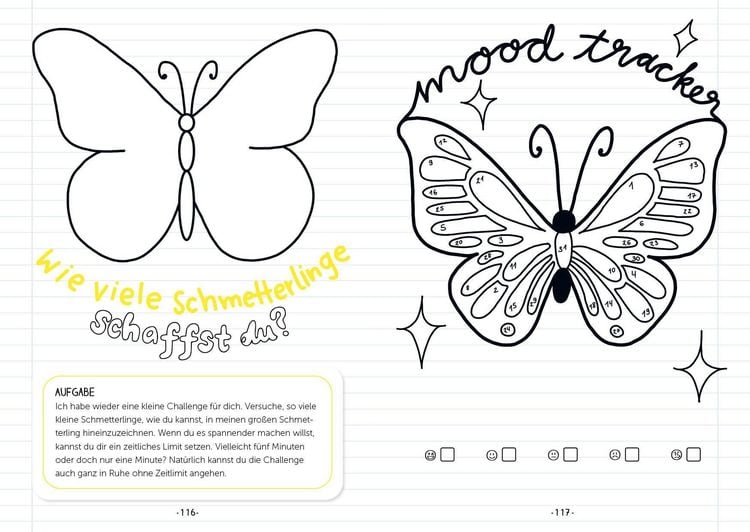 Wie viele Schmetterlinge
schaffst du?
AUFGABE
Ich habe wieder eine kleine Challenge für dich. Versuche, so viele
kleine Schmetterlinge, wie du kannst, in meinen großen Schmet-
terling hineinzuzeichnen. Wenn du es spannender machen willst,
kannst du dir ein zeitliches Limit setzen. Vielleicht fünf Minuten
oder doch nur eine Minute? Natürlich kannst du die Challenge
auch ganz in Ruhe ohne Zeitlimit angehen.
·116·
mood tracker
12
7
9
13
21
1
16
17
25
22
5
6
20
3
26
23
28
30
11
10
4
8
2
15
29
18
14
19
31
24
·117·